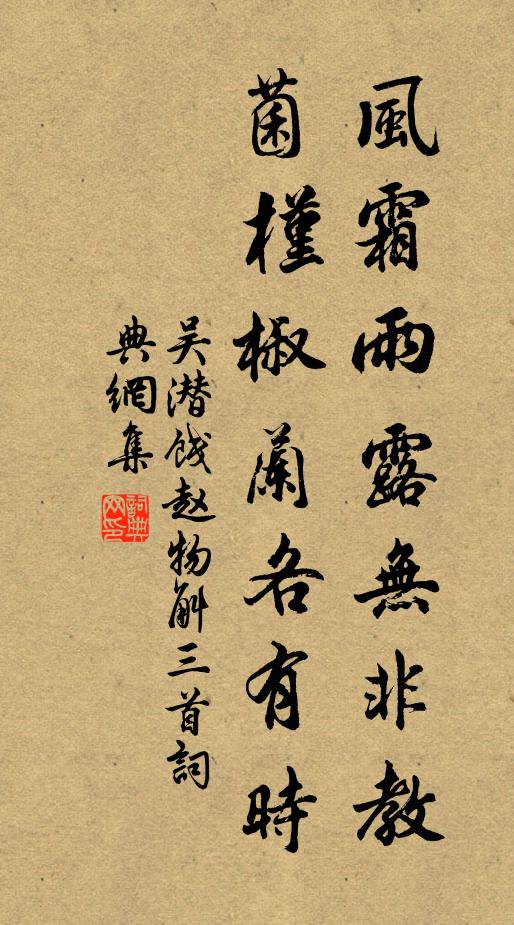 風霜雨露無非教
菌槿椒蘭各有時
吴潜餞赵物斛三首詞
典網集
詞典
网印